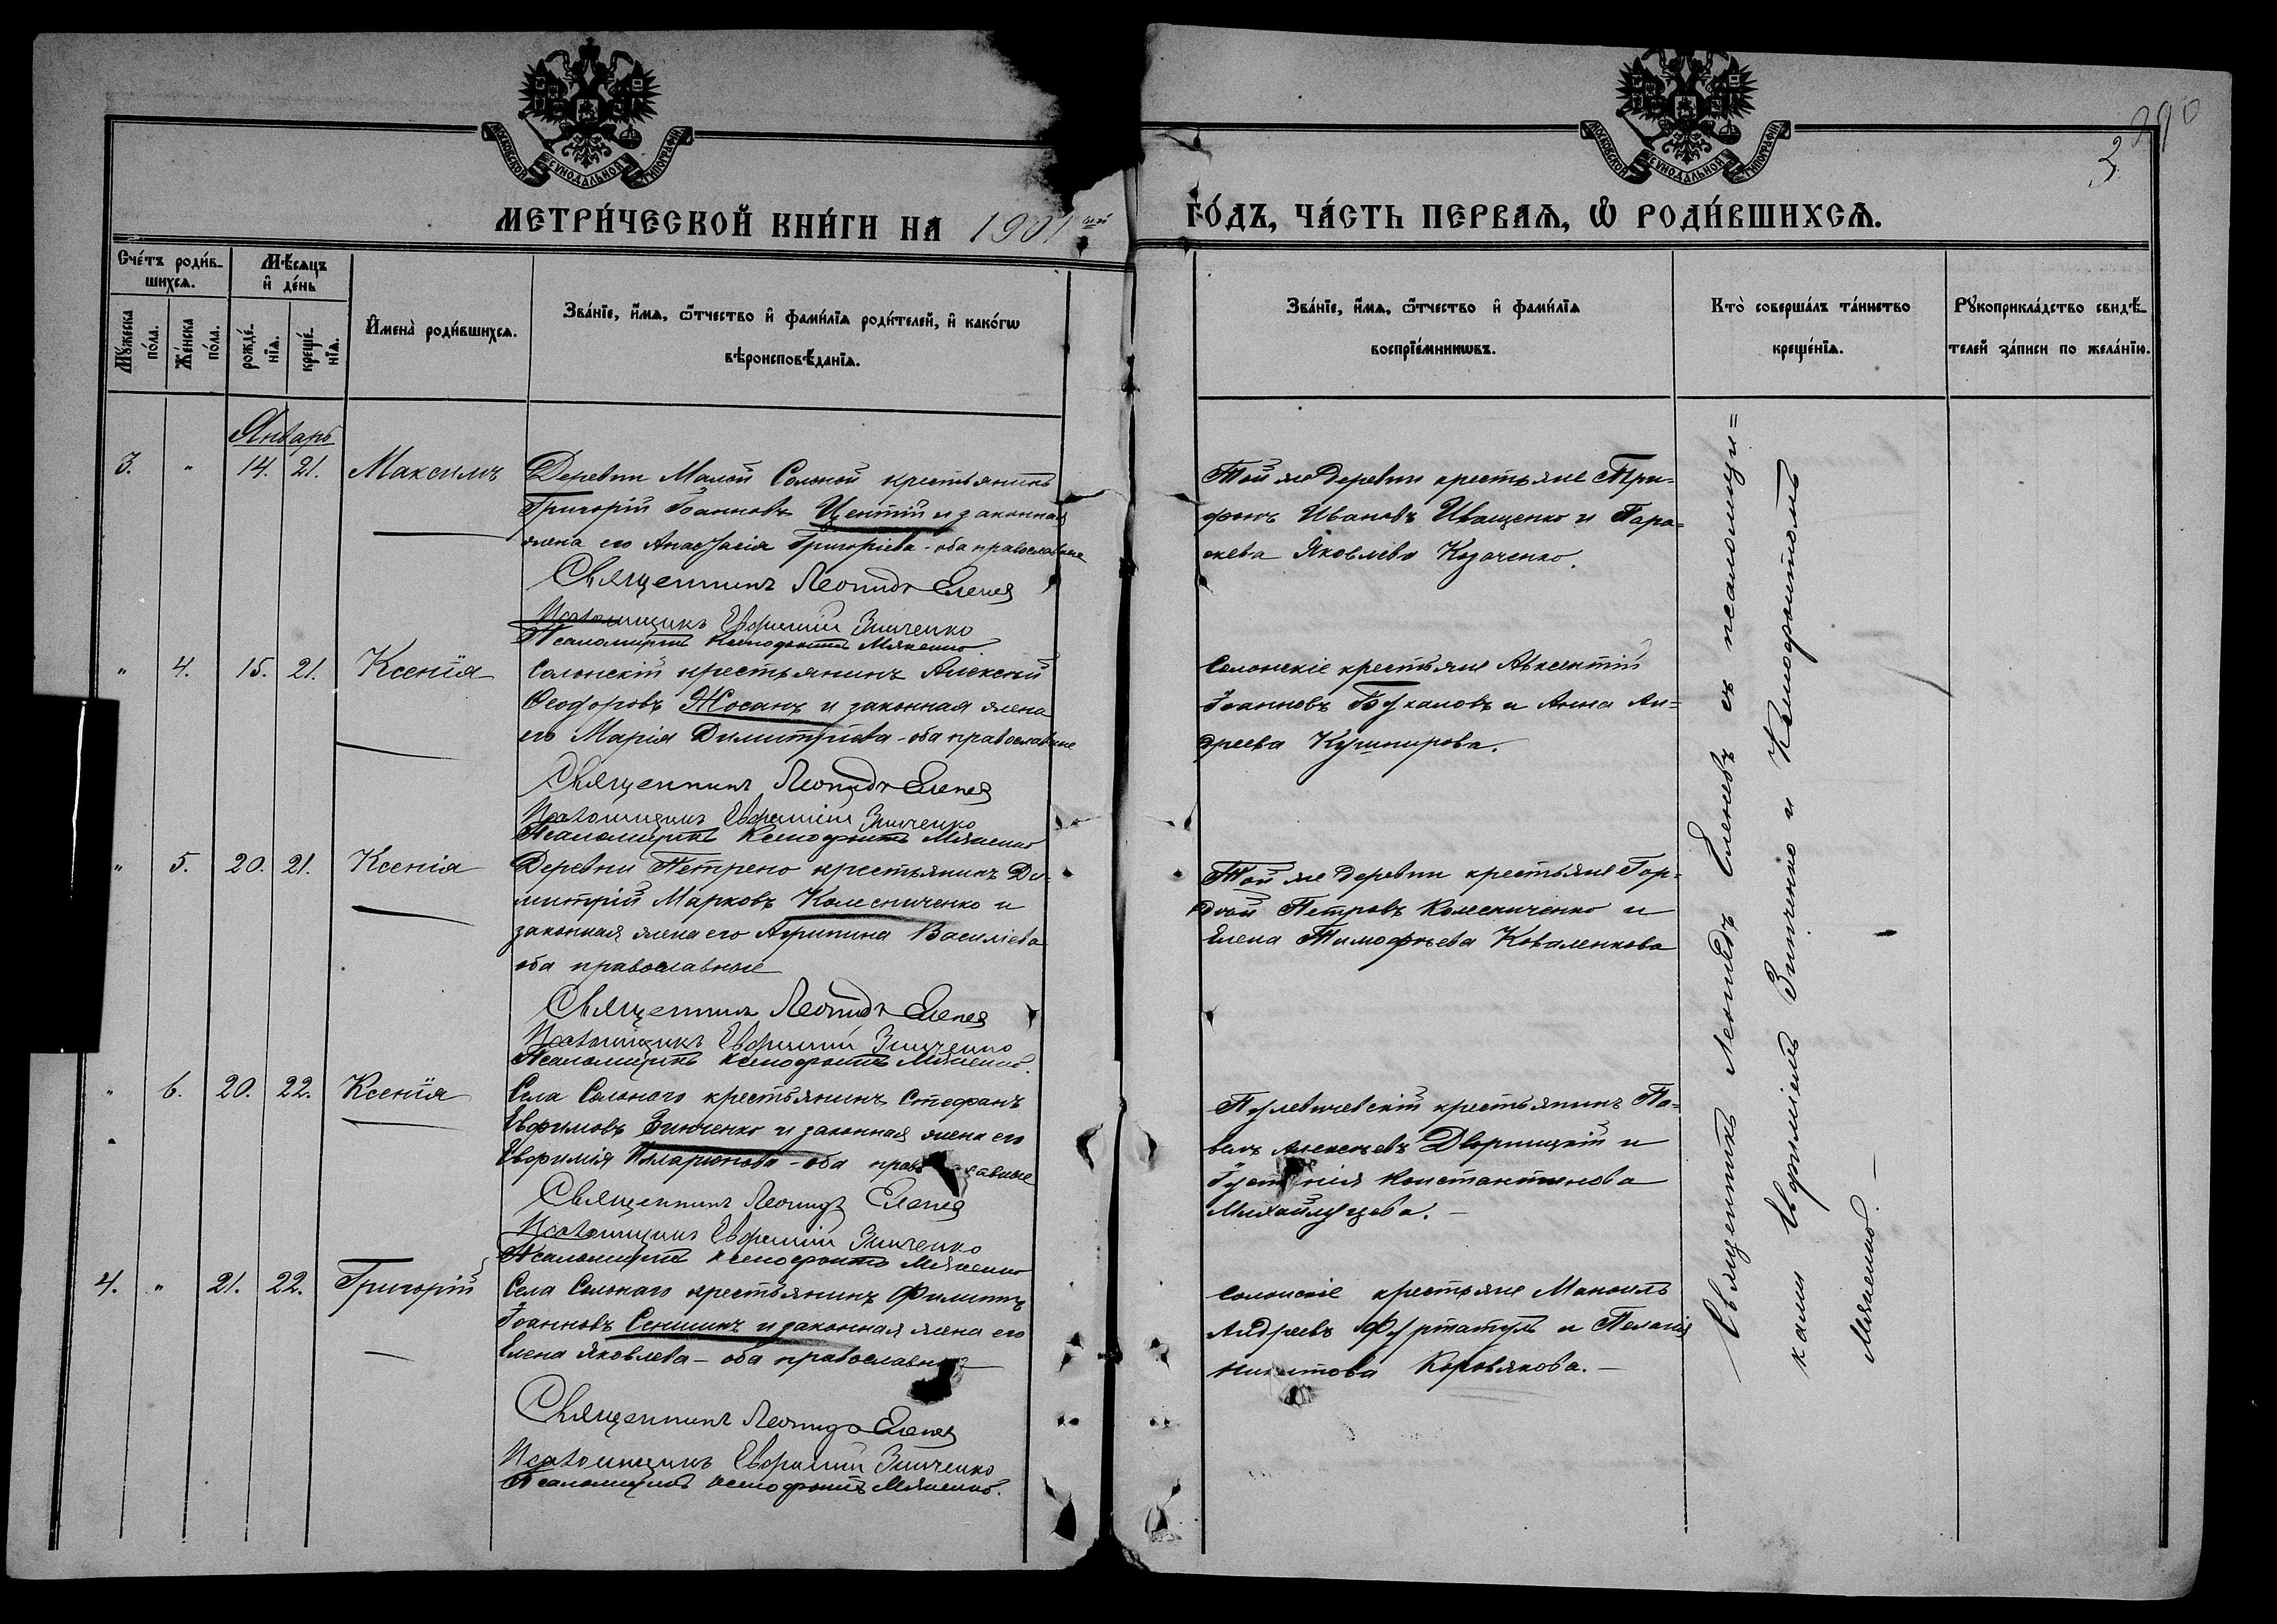 МОСКОВСКОЙ СѴНОДАЛЬНОЙ ТИПОГРАФІИ.
МОСКОВСКОЙ СѴНОДАЛЬНОЙ ТИПОГРАФІИ.
290
3
МЕТРИ́ЧЕСКОЙ КНИ́ГИ НА 1901 ГО́ДЪ, ЧА́СТЬ ПЕРВАѦ, Ѡ҆ РОДИ́ВШИХСѦ.
Сче́тъ роди́в-
шихсѧ.
Мѣ́сѧцъ
и҆ де́нь
Мꙋ́жеска
по́ла.
Же́нска
по́ла.
рожде́-
нїѧ.
креще́-
нїѧ.
И҆мена̀ роди́вшихсѧ.
Зва́нїе, и҆́мѧ, ѻ҆́тчество и҆ фами́лїѧ роди́телей, и҆ како́гѡ
вѣроисповѣ́данїѧ.
Зва́нїе, и҆́мѧ, ѻ҆́тчество и҆ фами́лїѧ
воспрїе́мникѡвъ.
Кто̀ соверша́лъ та́инство
креще́нїѧ.
Рꙋкоприкла́дство свидѣ́-
телей за́писи по жела́нїю.
Январь
3. " 14. 21. Максимъ
Деревни Малой Солоной крестьянинъ
Григорій Іоанновъ Центій и законная
жена его Анастасія Григоріева - оба православные
Священникъ Леонидъ Еленев
Псаломщикъ Евфимій Зинченко
Псаломщикъ Ксенофонтъ Мякенко.
Той же деревни крестьяне Три-
фонъ Ивановъ Иващенко и Пара-
скева Яковлева Козаченко.
" 4. 15. 21. Ксенія
Солонскій крестьянинъ Алексѣй
Ѳеодоровъ Жосанъ и законная жена
его Марія Димитріева - оба православные
Священникъ Леонидъ Еленев
Псаломщикъ Евфимій Зинченко
Псаломщикъ Ксенофонтъ Мякенко
Солонскіе крестьяне Авксентій
Іоанновъ Букаловъ и Анна Ан-
дреева Кушнирова.
" 5. 20. 21. Ксенія
Деревни Петрено крестьянинъ Ди-
митрій Марковъ Колесниченко и
законная жена его Агрипина Василіева
оба православные
Священникъ Леонидъ Еленев
Псаломщикъ Евфимій Зинченко
Псаломщикъ Ксенофонтъ Мякенко.
Той же деревни крестьяне Гор-
дѣй Петровъ Колесниченко и
Елена Тимофѣева Коваленкова
" 6. 20. 22. Ксенія
Села Солонаго крестьянинъ Стефанъ
Евфимовъ Зинченко и законная жена его
Евфимія Илларіонова - оба православные
Священникъ Леонидъ Еленев
Псаломщикъ Евфимій Зинченко
Псаломщикъ Ксенофонтъ Мякенко
крестьянинъ Па-
велъ Алексѣевъ Дворницкій и
Іустинія Константинова
Михайлуцева. -
4. " 21. 22. Григорій
Села Солонаго крестьянинъ Филиппъ
Іоанновъ Сенишинъ и законная жена его
Елена Яковлева - оба православные
Священникъ Леонидъ Еленев
Псаломщикъ Евфимій Зинченко
Псаломщикъ Ксенофонтъ Мякенко.
Солонскіе крестьяне Мануилъ
Андреевъ Фуртатулъ и Пелагія
Никитова Коровякова. -
Священникъ Леонидъ Еленевъ съ псаломщи=
ками Евфиміемъ Зинченко и Ксенофонтомъ
Мякенко. -